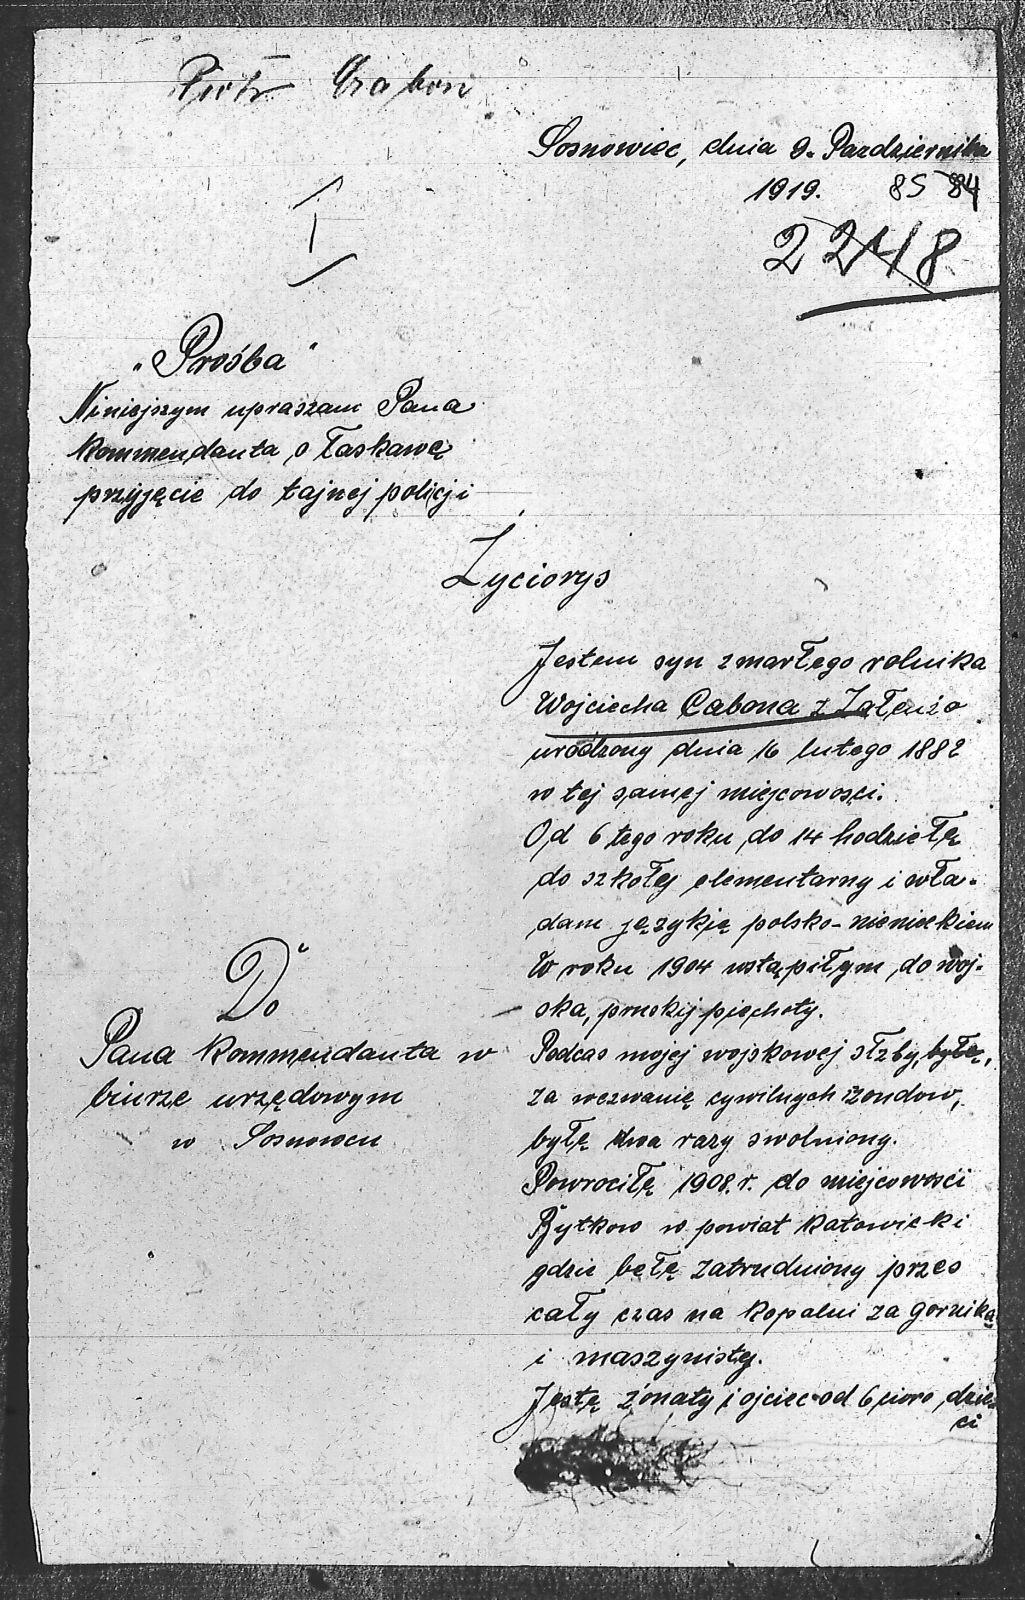 Piotr Czabon
Sosnowiec, dnia 9. Pazdziernika
1919. 85 84
2248
I
"Prośba"
Niniejszym upraszam Pana
Kommendanta o łaskawę
przyjęcie do tajnej policji
Życiorys
Jestem syn zmarłego rolnika
Wojciecha Cabona z Załenża
urodzony dnia 16 lutego 1882
w tej samej miejcowosci.
Od 6 tego roku do 14 hodziełę
do szkołej elementarny i wła-
dam językię polsko-niemiekiem
W roku 1904 wstąpiłym do woj-
ska, pruskij piechoty.
Podcas mojej wojskowej słzby, byłę,
za wezwanię cywilnych rzondow,
byłę dwa razy swolniony.
Powrociłę 1908. r. do miejcowości
Bytkow w powiat Katowicki
gdzie bełę zatrudniony przes
cały czas na kopalni za gornika
i maszynistę.
Jestę żonaty i ojciec od 6 cioro dzie-
ci
Do
Pana Kommendanta w
biurze urzędowym
w Sosnowcu